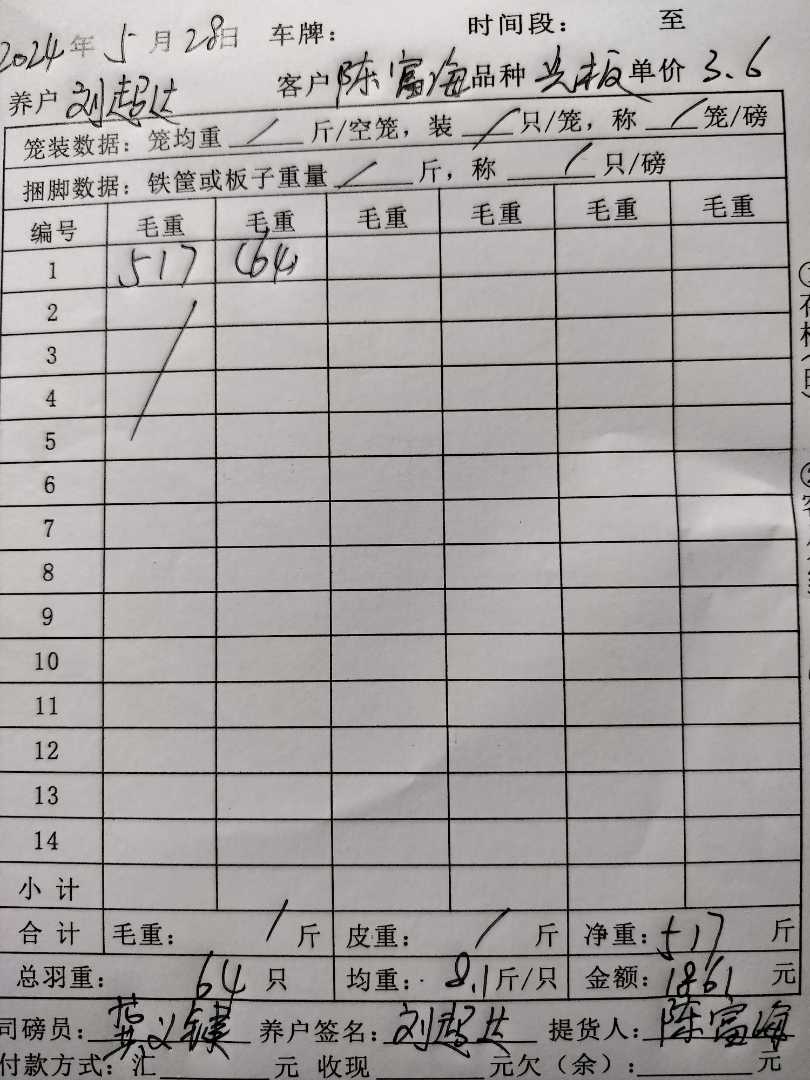 2024年5月28日 车牌： 时间段： 至
养户 刘超达 客户 陈富海 品种 光板 单价 3.6
笼装数据：笼均重 / 斤/空笼，装 / 只/笼，称 / 笼/磅
捆脚数据：铁筐或板子重量 / 斤，称 / 只/磅
编号 毛重 毛重 毛重 毛重 毛重 毛重
1 517 (64)
2
3
4
5
6
7
8
9
10
11
12
13
14
小计
合计 毛重： / 斤 皮重： / 斤 净重：517 斤
总羽重： 64 只 均重： 8.1 斤/只 金额：1861 元
司磅员： 养户签名：刘超达 提货人：陈富海
付款方式：汇 元 收现 元欠（余）： 元